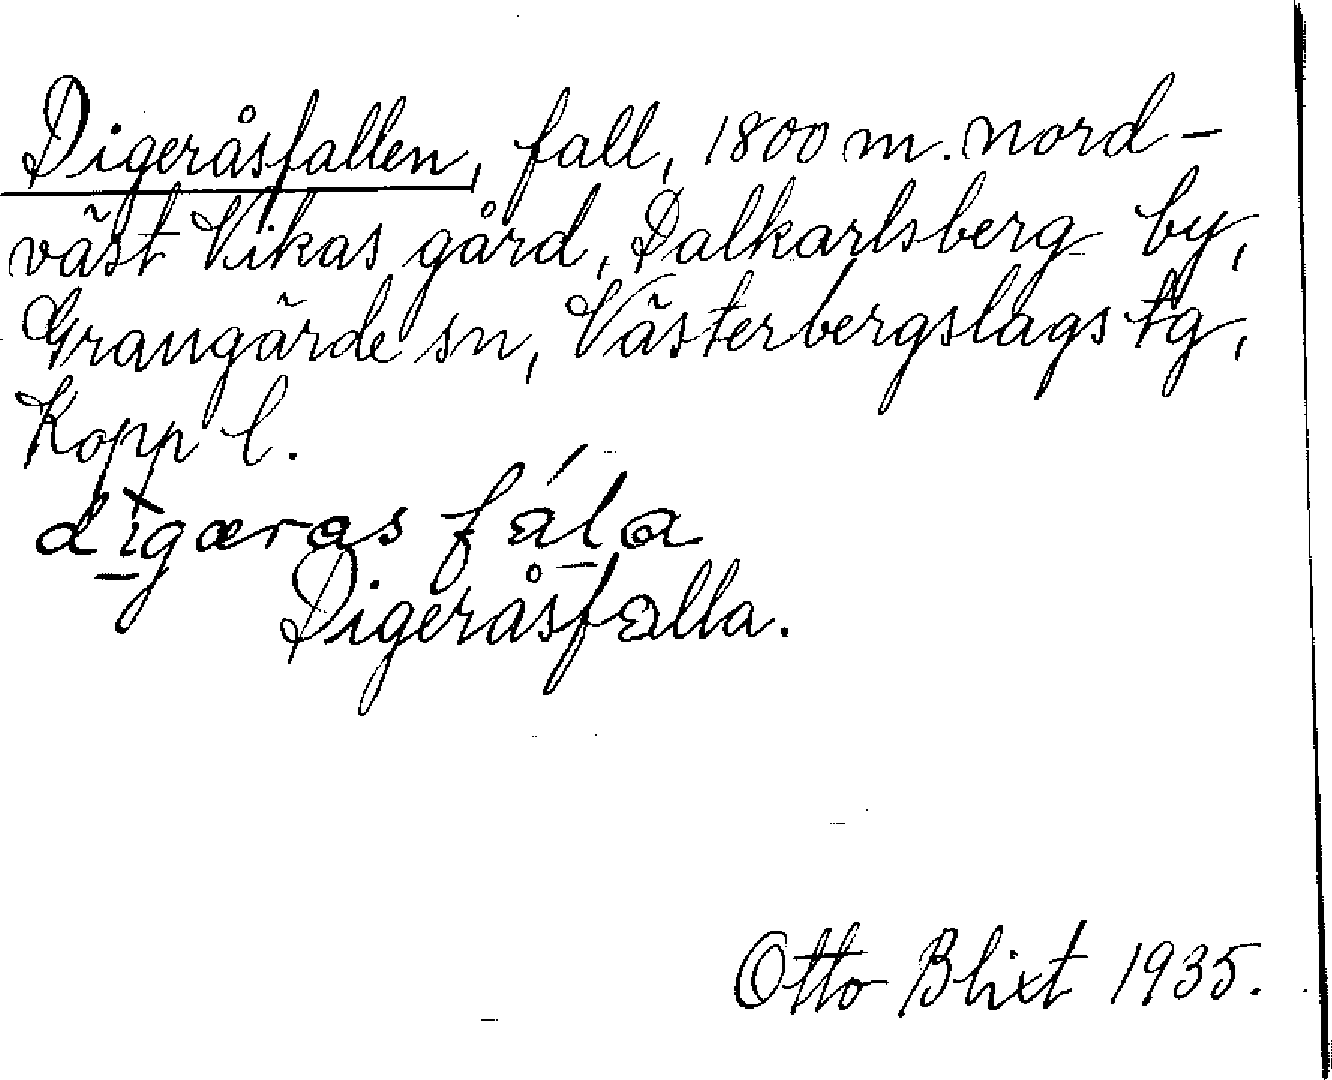 Digeråsfallen, fall, 1800 m. nord-
väst Vikas gård, Dalkarlsberg by,
Grangärde sn, Västerbergslags tg,
Kopp l.
dìgæras fála
Digeråsfalla.
Otto Blixt 1935.